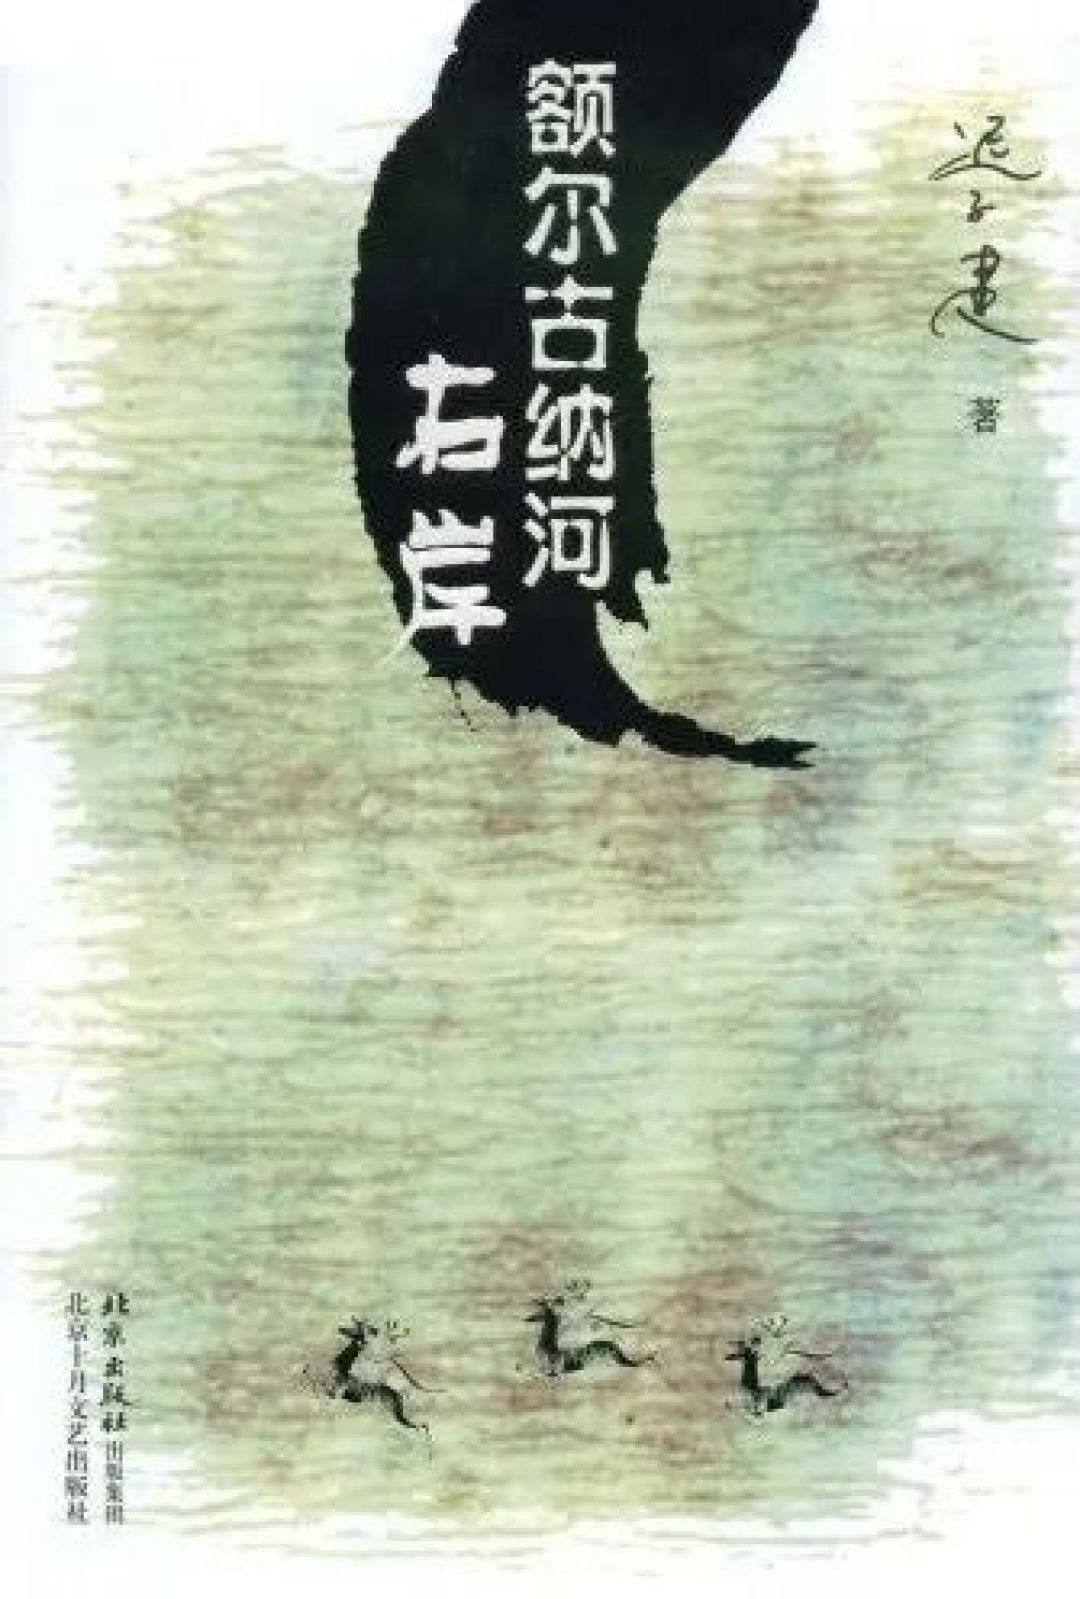 迟子建
著
额尔古纳河
右岸
北京出版社出版集团
北京十月文艺出版社